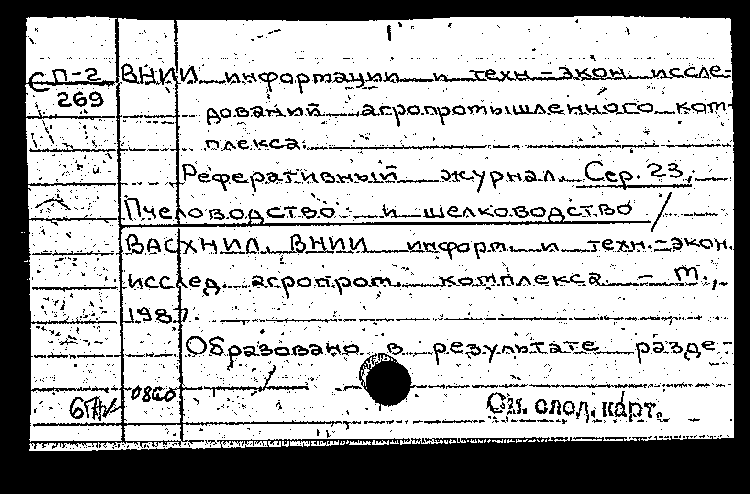 СП-2 ВНИИ информации и техн.-экон. иссле-
269
дований агропромышленного ком-
плекса.
Реферативный журнал. Сер. 23,
Пчеловодство и шелководство /
ВАСХНИЛ, ВНИИ информ. и техн.-экон.
исслед. агропром. комплекса. – М.,
1987.
Образовано в результате разде-
0860
См. след. карт.